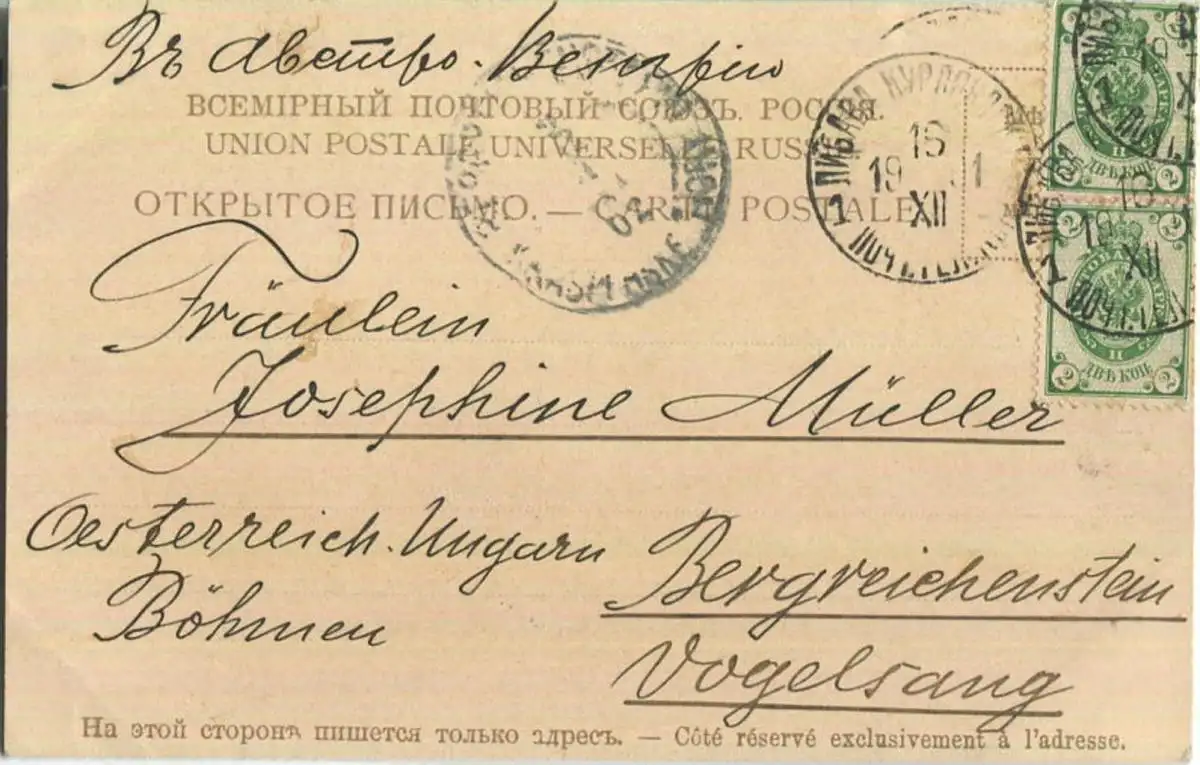 Въ Австро-Венгрію
ВСЕМІРНЫЙ ПОЧТОВЫЙ СОЮЗЪ. РОССІЯ.
UNION POSTALE UNIVERSELLE RUSS
ОТКРЫТОЕ ПИСЬМО. — CARTE POSTALE
ЛИБАВА КУРЛЯНД
16
19 1
XII
1 ПОЧ.ТЕЛ
02
2 2
ДВѢ КОП.
ЛИБ
19
XII
1 ПОЧ.Т
16
19
XII
1 ПОЧ.ТЕЛ
2 ДВѢ КОП. 2
Fräulein
Josephine Müller
Oesterreich-Ungarn
Böhmen
Bergreichenstein
Vogelsang
На этой сторонѣ пишется только адресъ. — Côté réservé exclusivement à l'adresse.